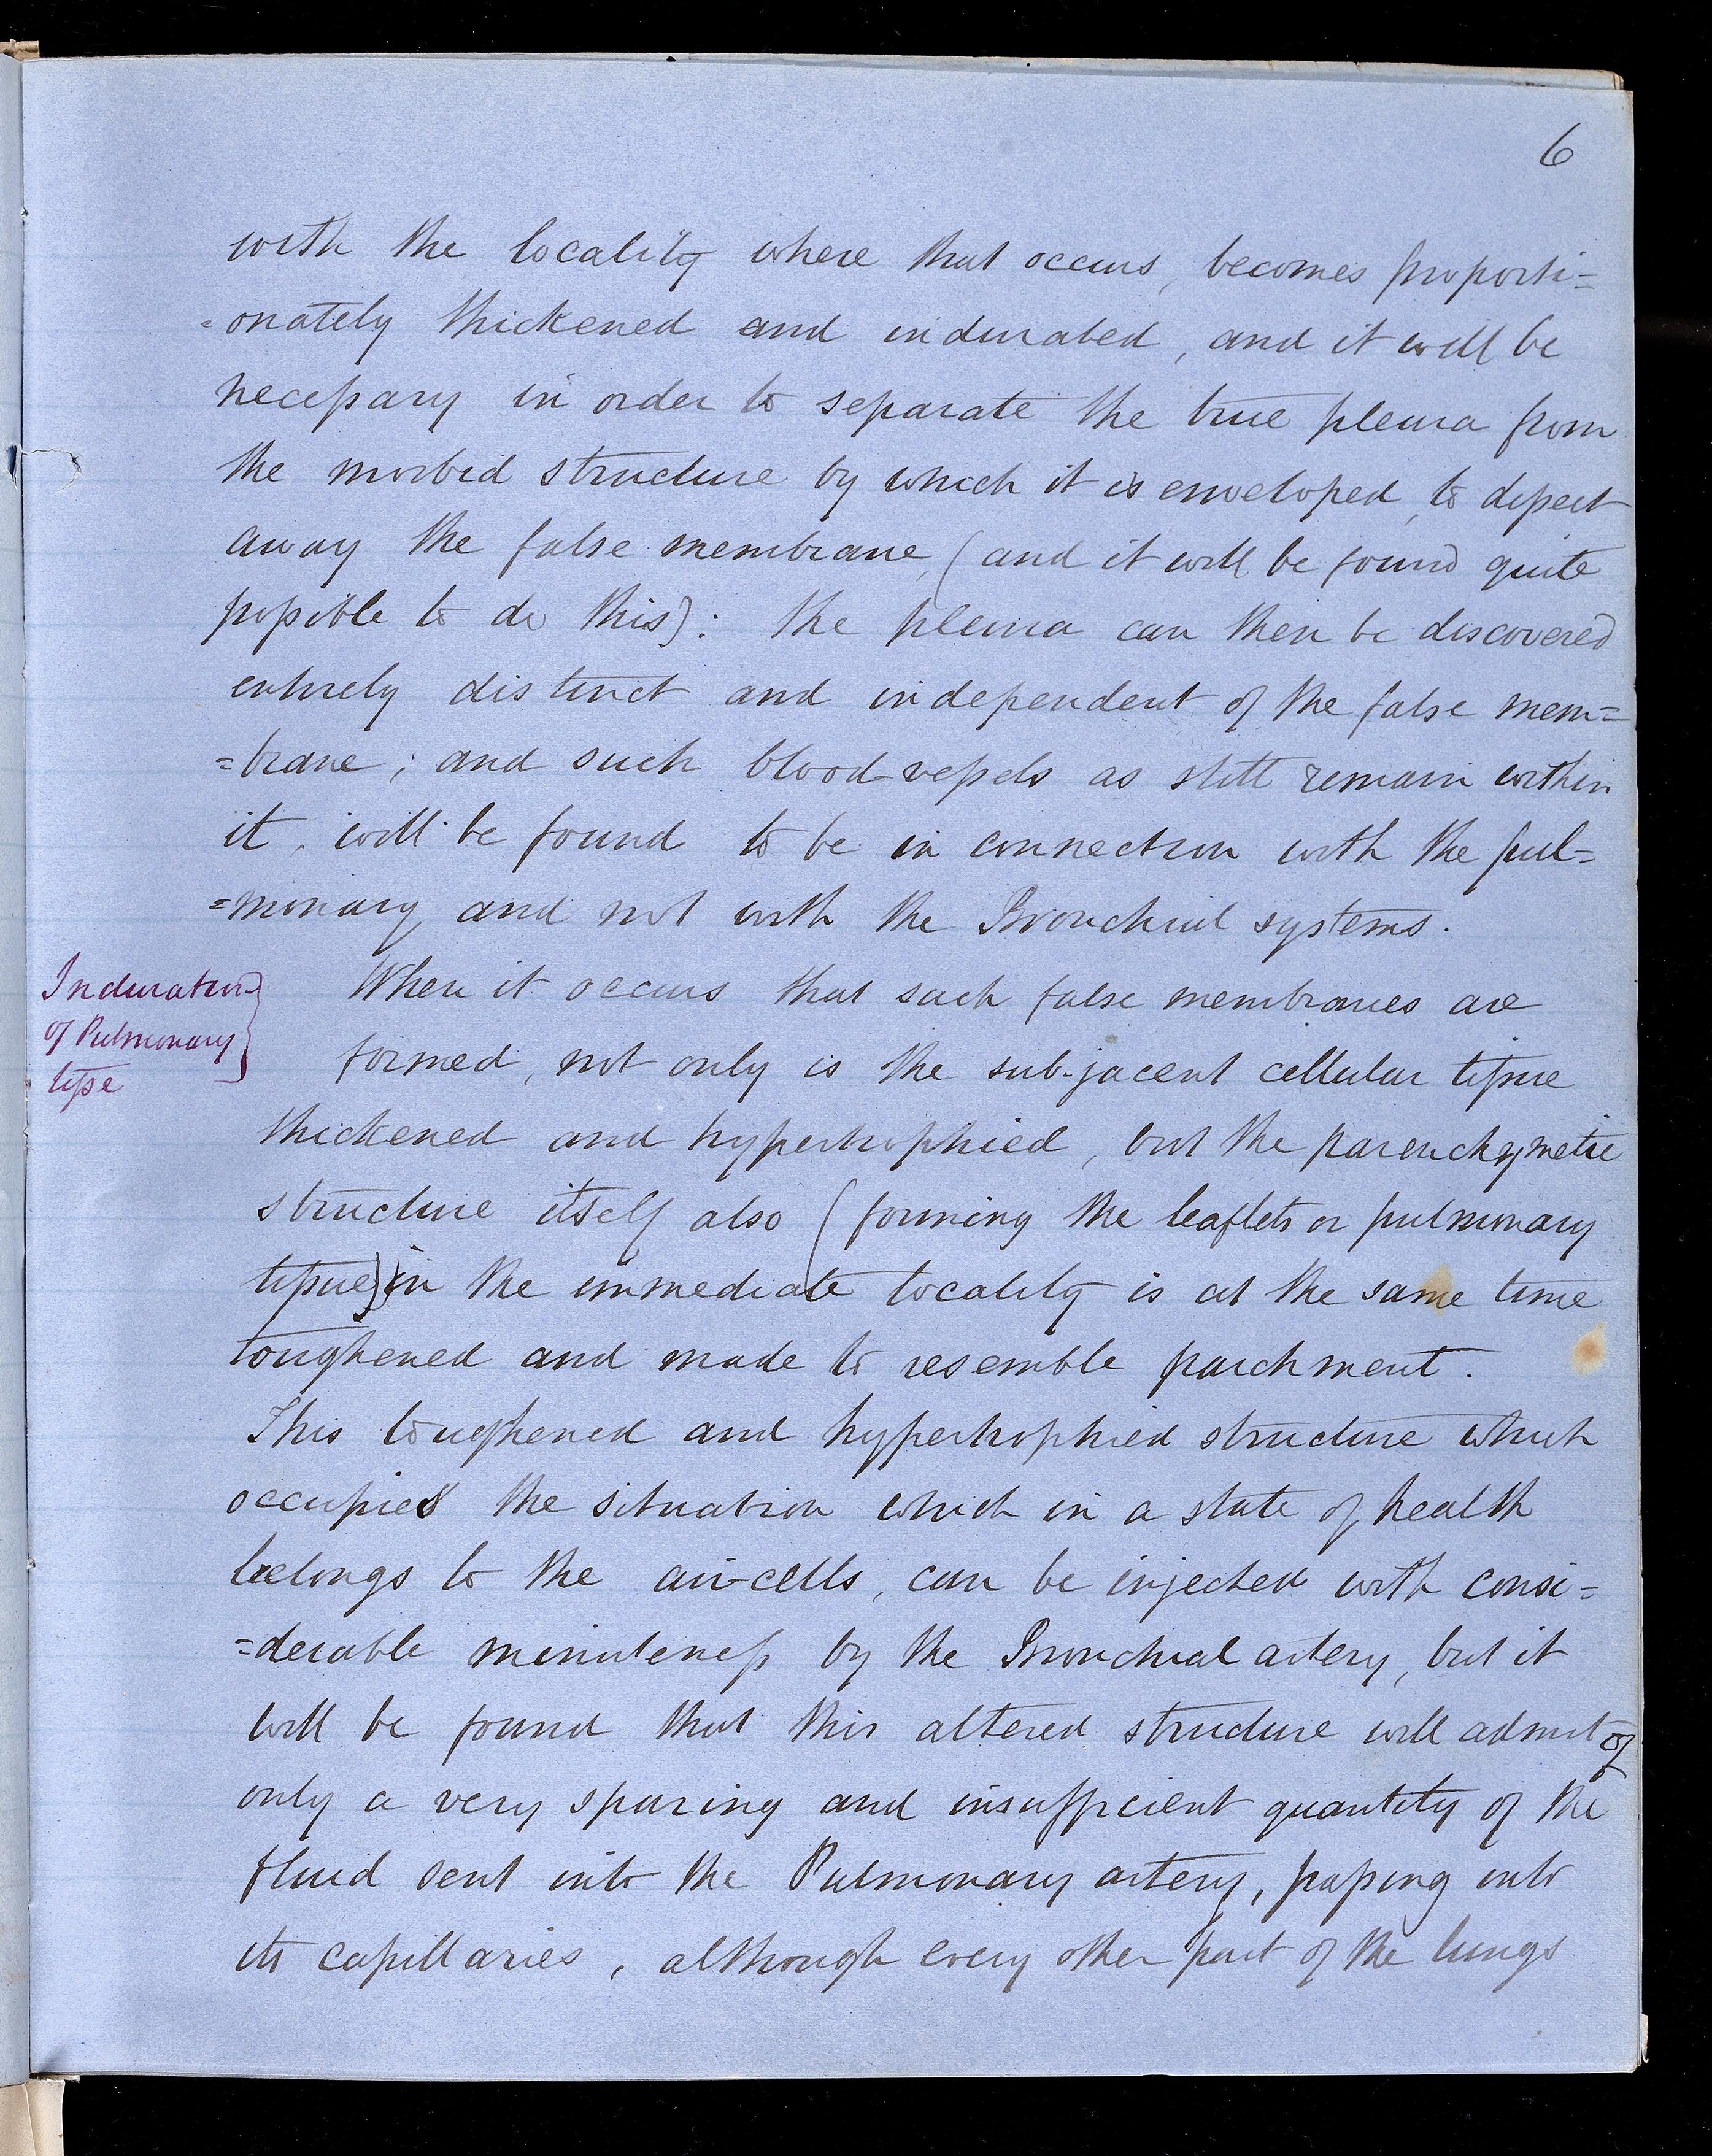 6
with the locality where that occurs, becomes proporti=
=onately thickened and indurated, and it will be
necessary in order to separate the true pleura from
the morbid structure by which it is enveloped, to dissect
away the false membrane, (and it will be found quite
possible to do this): the pleura can then be discovered
entirely distinct and independent of the false mem=
=brane; and such blood-vessels as still remain within
it, will be found to be in connection with the pul=
=monary, and not with the Bronchial systems.
Induration
of Pulmonary
tisse
When it occurs that such false membranes are
formed, not only is the sub-jacent cellular tissue
thickened and hypertrophied, but the parenchymetic
structure itself also (forming the leaflets or pulmonary
tissue) in the immediate locality is at the same time
toughened and made to resemble parchment.
This toughened and hypertrophied structure which
occupies the situation which in a state of health
belongs to the air-cells, can be injected with consi=
=derable minuteness by the Bronchial artery, but it
will be found that this altered structure will admit of
only a very sparing and insufficient quantity of the
fluid sent into the Pulmonary artery, passing into
its capillaries, although every other part of the lungs